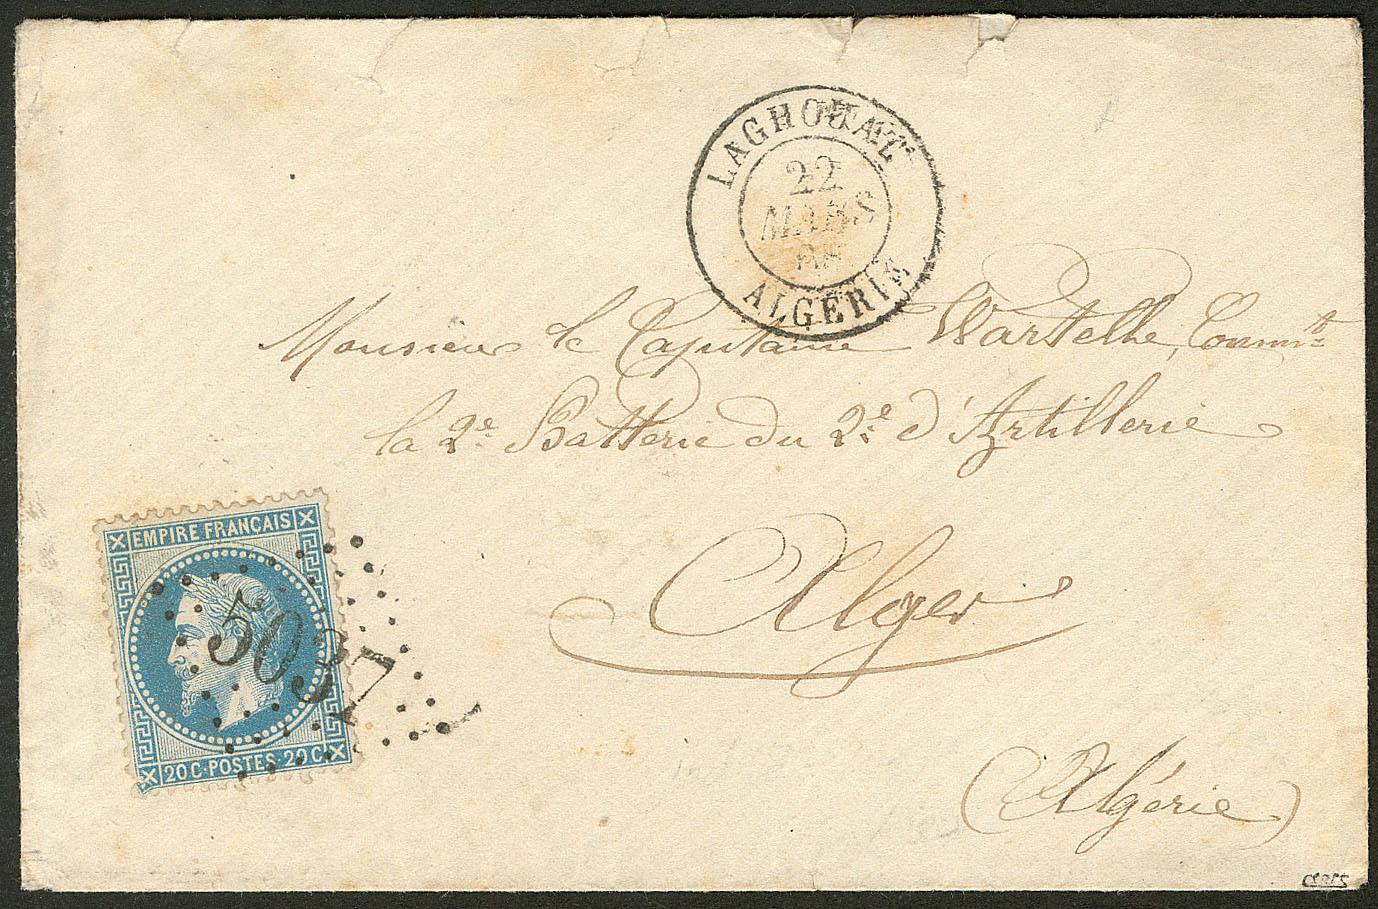 LAGHOUAT
22
MARS
ALGÉRIE
Monsieur le Capitaine Wartelle, Comm<sup>t</sup>
la 2e Batterie du 2e d'Artillerie
Alger
(Algérie)
EMPIRE FRANÇAIS
20 C. POSTES 20 C.
5037